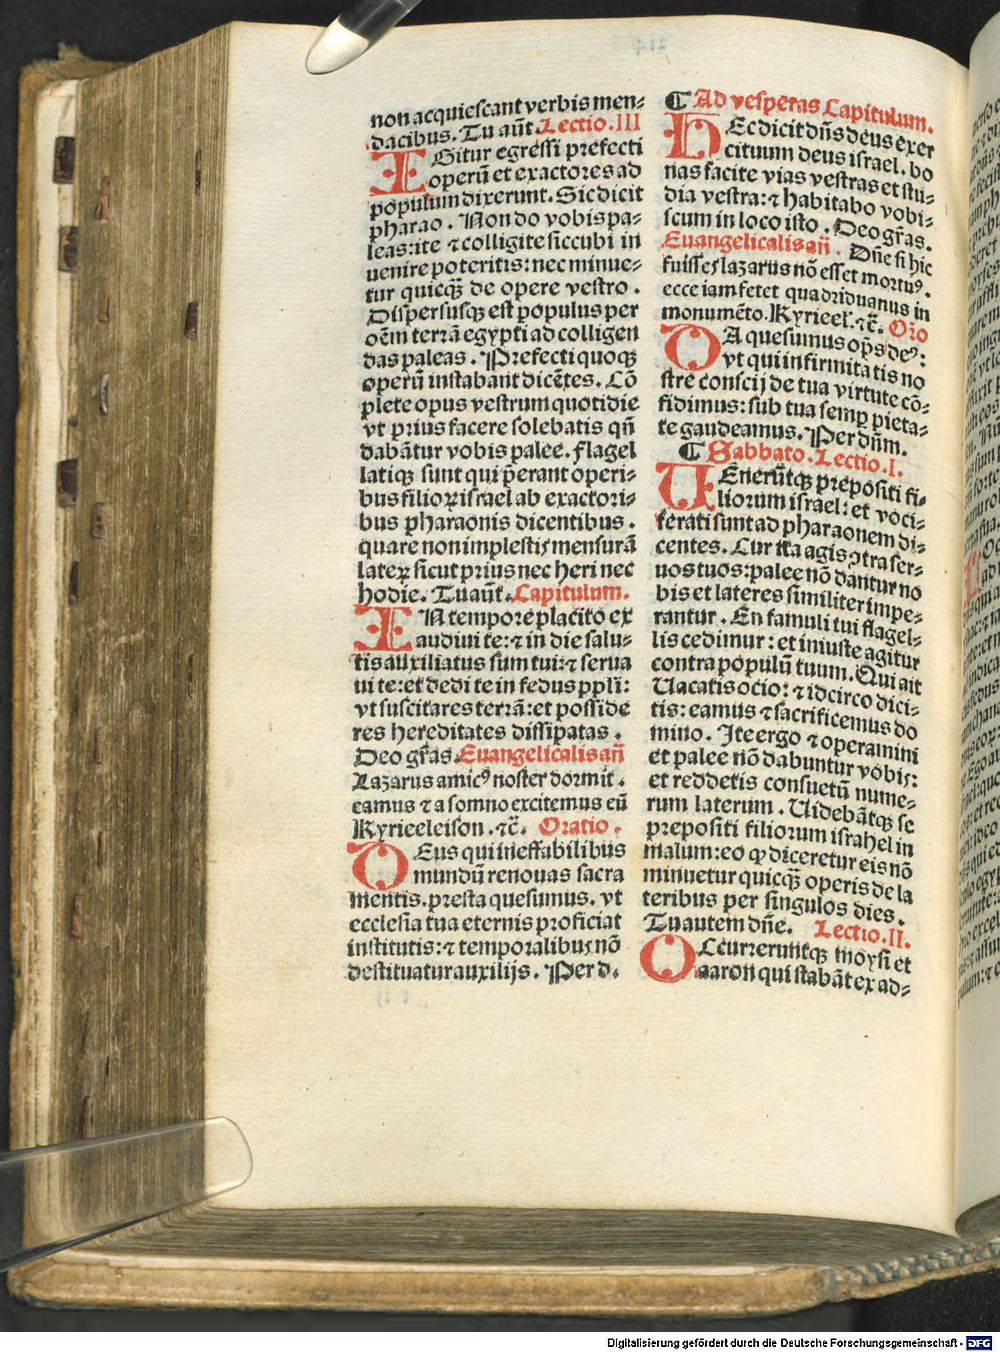 non acquiescant verbis men⸗
dacibus. Tu aūt. Lectio. III
IGitur egressi prefecti
operū et exactores ad
populum dixerunt. Sic dicit
pharao. Non do vobis pa⸗
leas: ite ⁊ colligite sicubi in
uenire poteritis: nec minue⸗
tur quicq̄ꝫ de opere vestro.
Dispersusqꝫ est populus per
oēm terrā egypti ad colligen
das paleas. Prefecti quoqꝫ
operū instabant dicētes. Cō
plete opus vestrum quotidie
vt prius facere solebatis qn̄
dabātur vobis palee. flagel
latiqꝫ sunt qui p̄erant operi⸗
bus filioꝝ israel ab exactori⸗
bus pharaonis dicentibus.
quare non implestis mensurā
lateꝝ sicut prius nec heri nec
hodie. Tu aūt. Capitulum.
IN tempore placito ex
audiui te: ⁊ in die salu⸗
tis auxiliatus sum tui: ⁊ serua
ui te: et dedi te in fedus ppl̄i:
vt suscitares terrā: et posside
res hereditates dissipatas.
Deo gr̄as. Euangelicalis an̄
Lazarus amicꝰ noster dormit.
eamus ⁊ a somno excitemus eū
Kyrieeleison. ⁊c̄. Oratio.
DEus qui ineffabilibus
mundū renouas sacra
mentis. presta quesumus. vt
ecclesia tua eternis proficiat
institutis: ⁊ temporalibus nō
destituatur auxilijs. Per d.
¶ Ad vesperas Capitulum.
HEc dicit dn̄s deus exer
cituum deus israel. bo
nas facite vias vestras et stu⸗
dia vestra: ⁊ habitabo vobi⸗
scum in loco isto. Deo gr̄as.
Euangelicalis an̄. Dn̄e si hic
fuisses lazarus nō esset mortuꝰ.
ecce iam fetet quadriduanus in
monumēto. Kyrieel. ⁊c̄. Oro
DA quesumus op̄s deꝰ:
vt qui infirmitatis no
stre conscij de tua virtute cō⸗
fidimus: sub tua semꝑ pieta⸗
te gaudeamus. Per dn̄m.
¶ Sabbato. Lectio. I.
UEnerūtqꝫ prepositi fi⸗
liorum israel: et voci⸗
ferati sunt ad pharaonem di⸗
centes. Cur ita agis ꝯtra ser⸗
uos tuos: palee nō dantur no
bis et lateres similiter impe⸗
rantur. En famuli tui flagel⸗
lis cedimur: et iniuste agitur
contra populū tuum. Qui ait
Uacatis ocio: ⁊ idcirco dici⸗
tis: eamus ⁊ sacrificemus do
mino. Ite ergo ⁊ operamini
et palee nō dabuntur vobis:
et reddetis consuetū nume⸗
rum laterum. Uidebātqꝫ se
prepositi filiorum israhel in
malum: eo ꝙ diceretur eis nō
minuetur quicq̄ꝫ operis de la
teribus per singulos dies.
Tu autem dn̄e. Lectio. II.
OCcurreruntqꝫ moysi et
aaron qui stabāt ex ad⸗
Digitalisierung gefördert durch die Deutsche Forschungsgemeinschaft - DFG